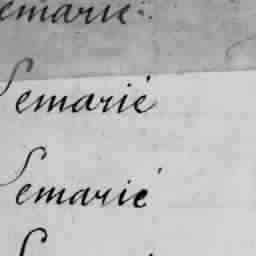 emarié
Semarié
Semarié